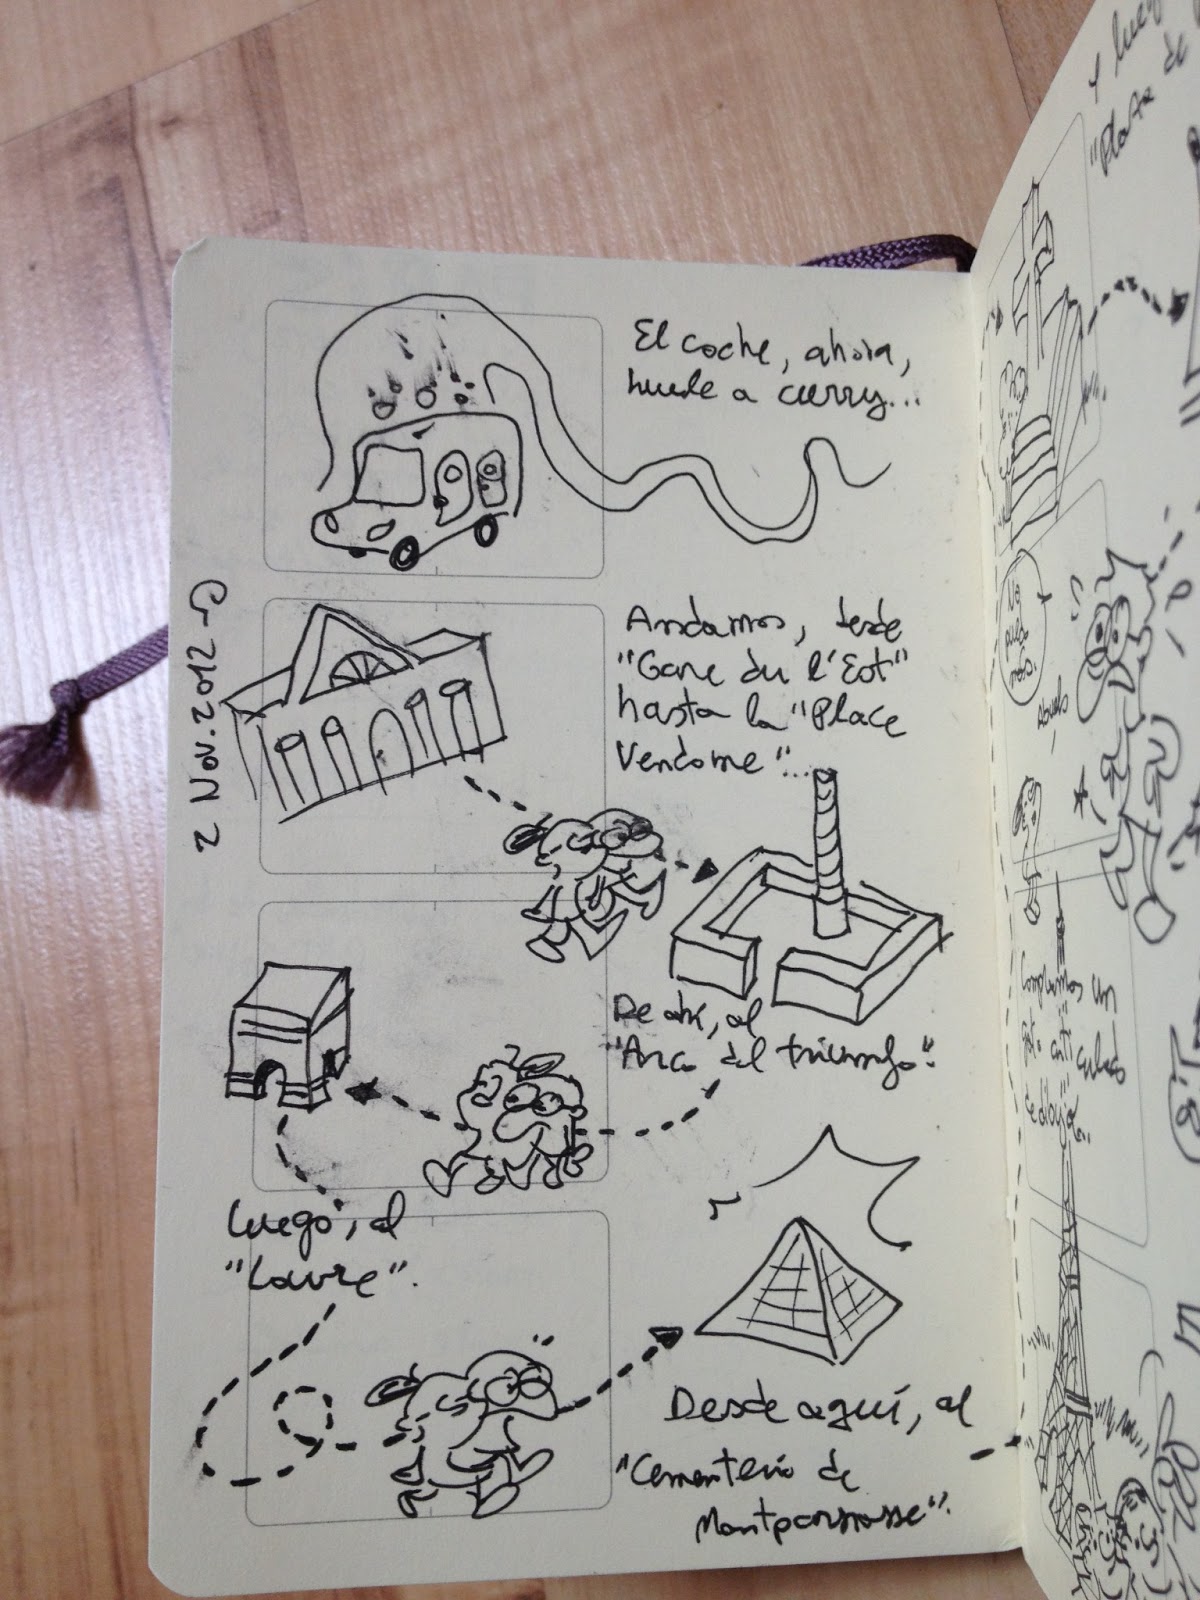 El coche, ahora,
huele a curry...
2 Nov. 2012
Andamos, desde
"Gare du l'Est"
hasta la "Place
Vendome"...
De ahí, al
"Arco del triunfo".
Luego, al
"Louvre".
Desde aquí, al
"Cementerio de
Montparnasse".
y luego
"Plaza de
un
comando
anti
se dibuja